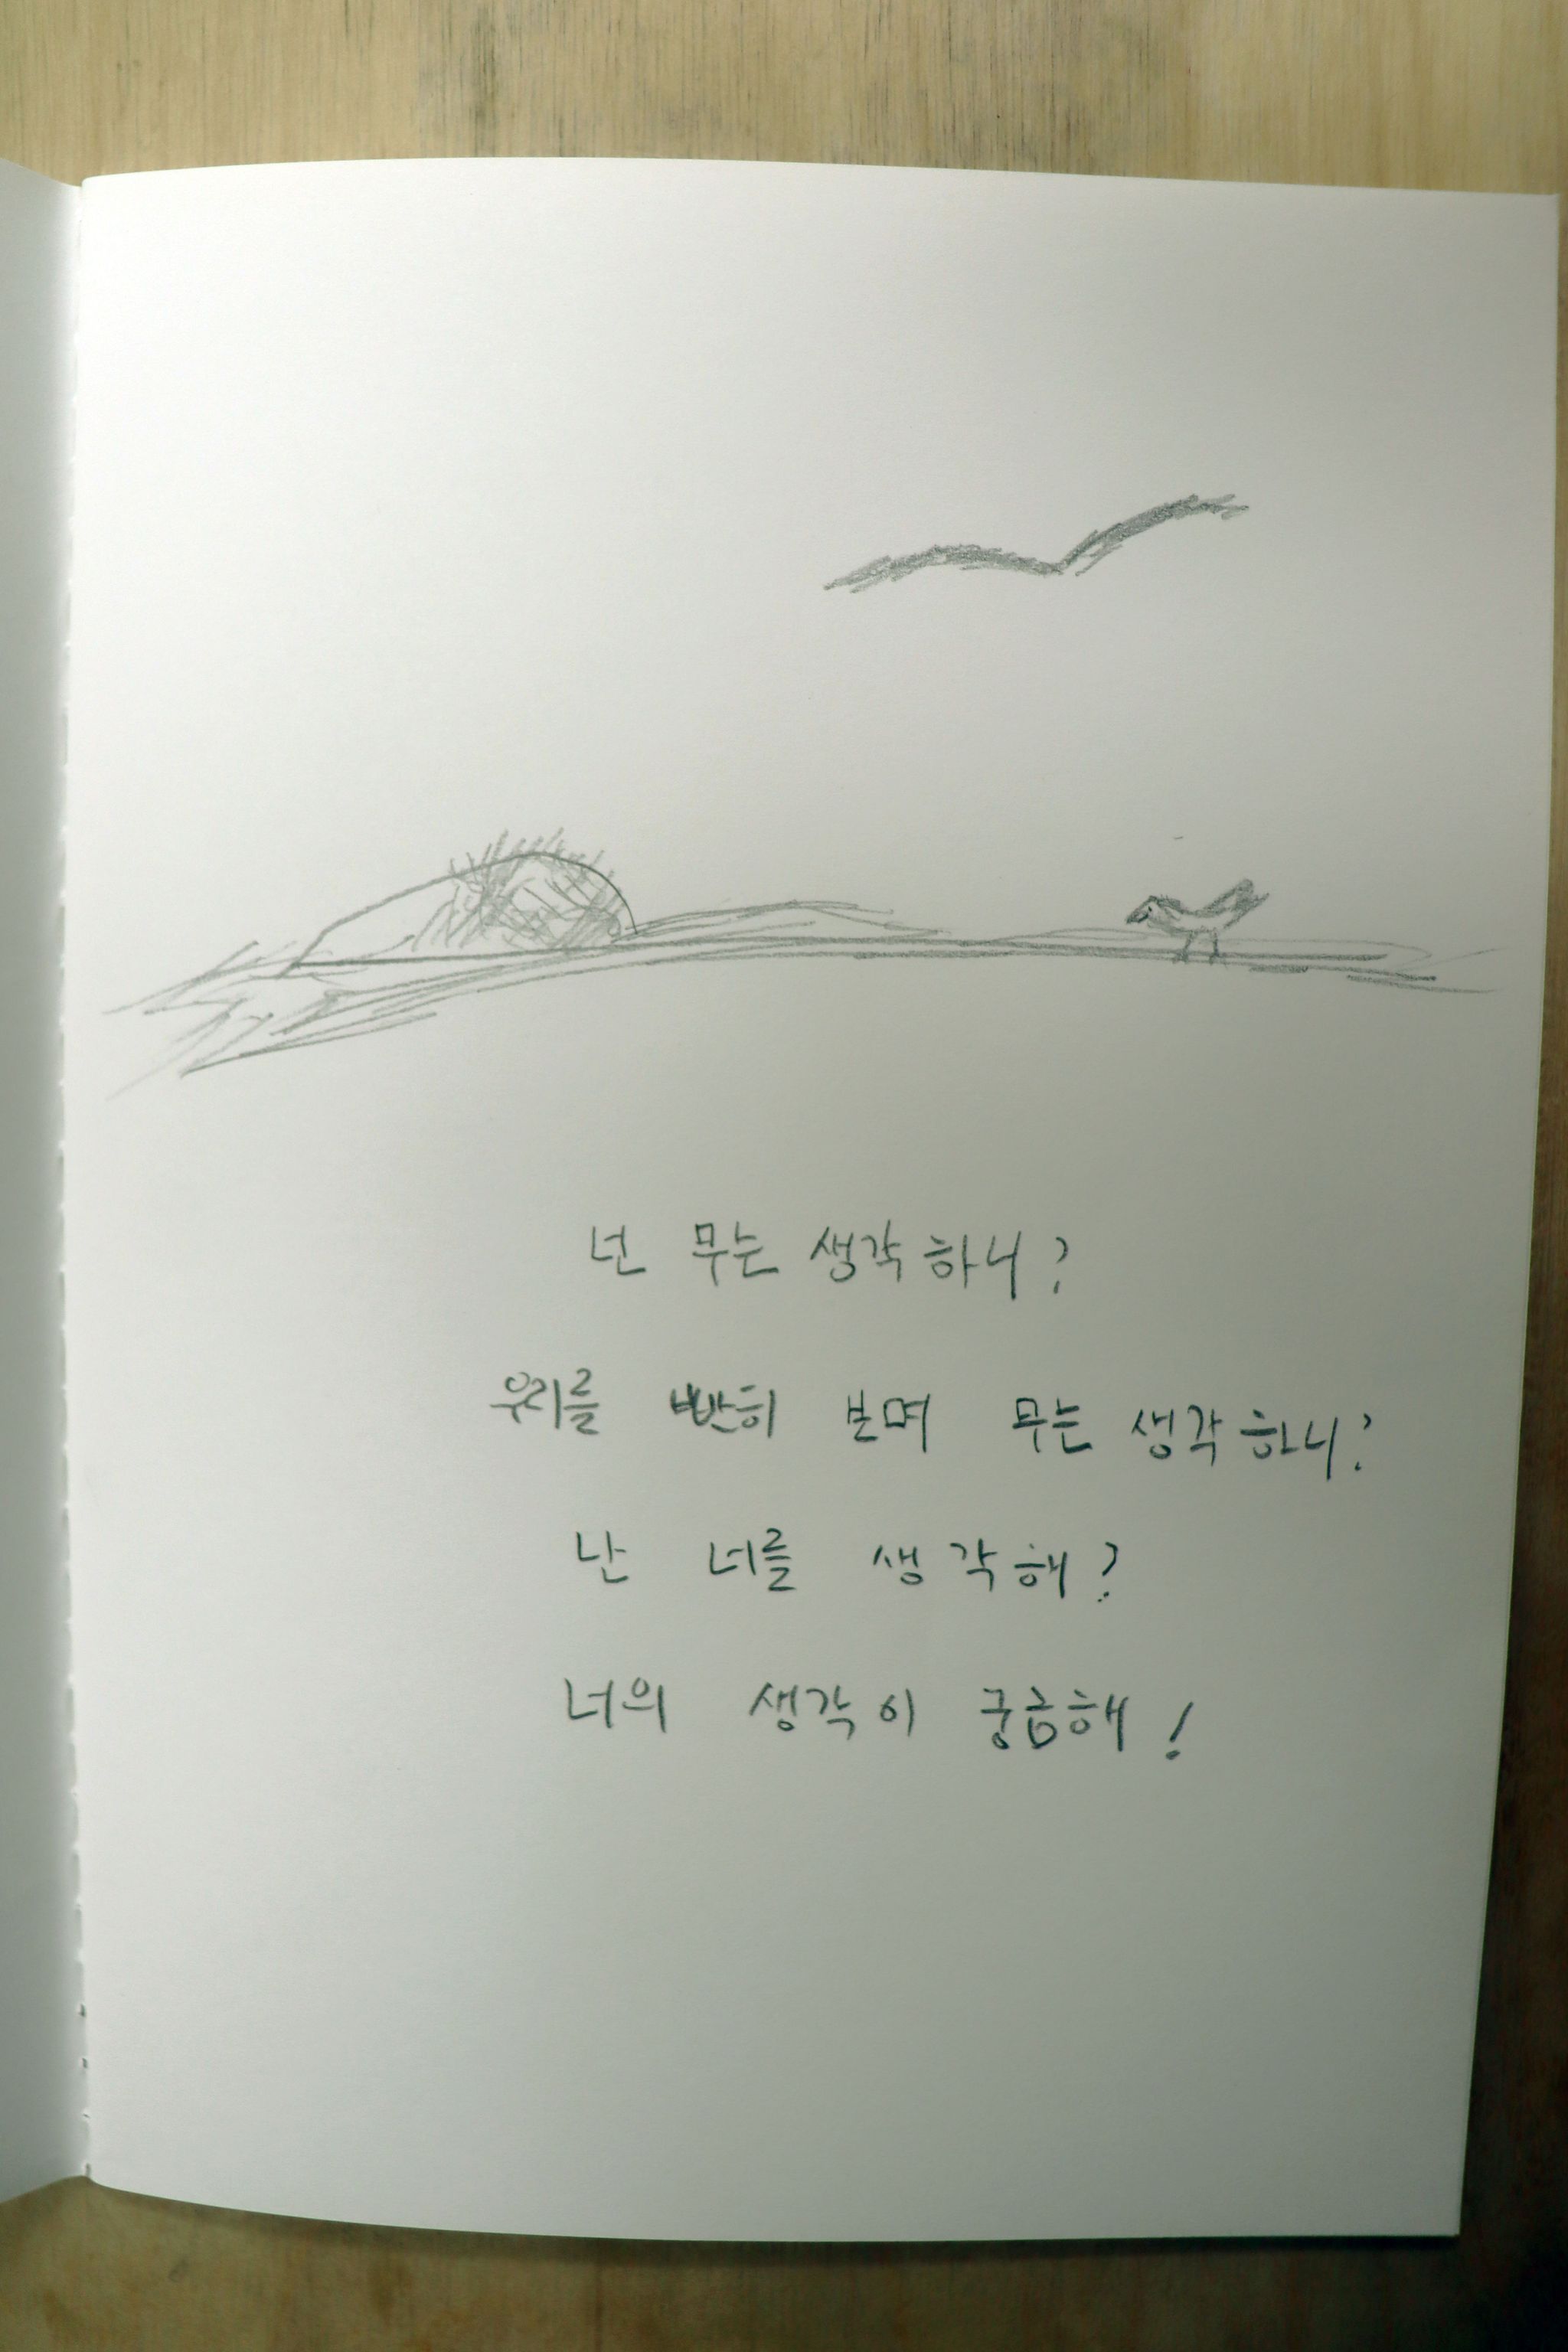 넌 무슨 생각하니?
우리를 빤히 보며 무슨 생각하니?
난 너를 생각해?
너의 생각이 궁금해!